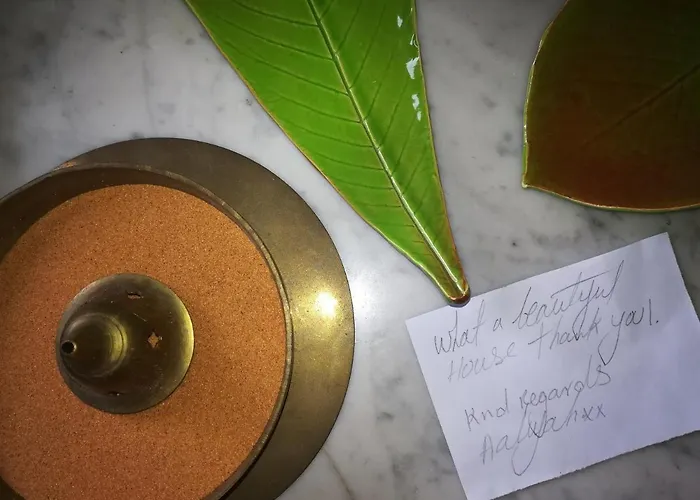 What a beautiful
House thank you!.
Knd Regards
Aaliyah xx